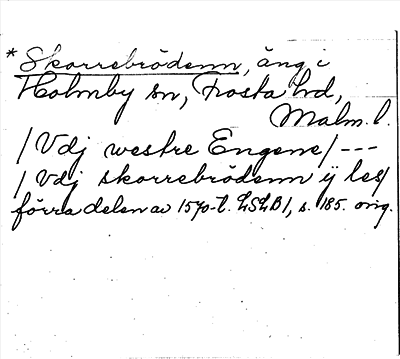 * Skorrebrödenn, äng i
Holmby sn, Frosta hd,
Malm. l.
/ Vdj westre Engene / ---
/ Vdj skorrebrödenn ÿ les/
förra delen av 1570-t. LSLB1, s. 185. orig.